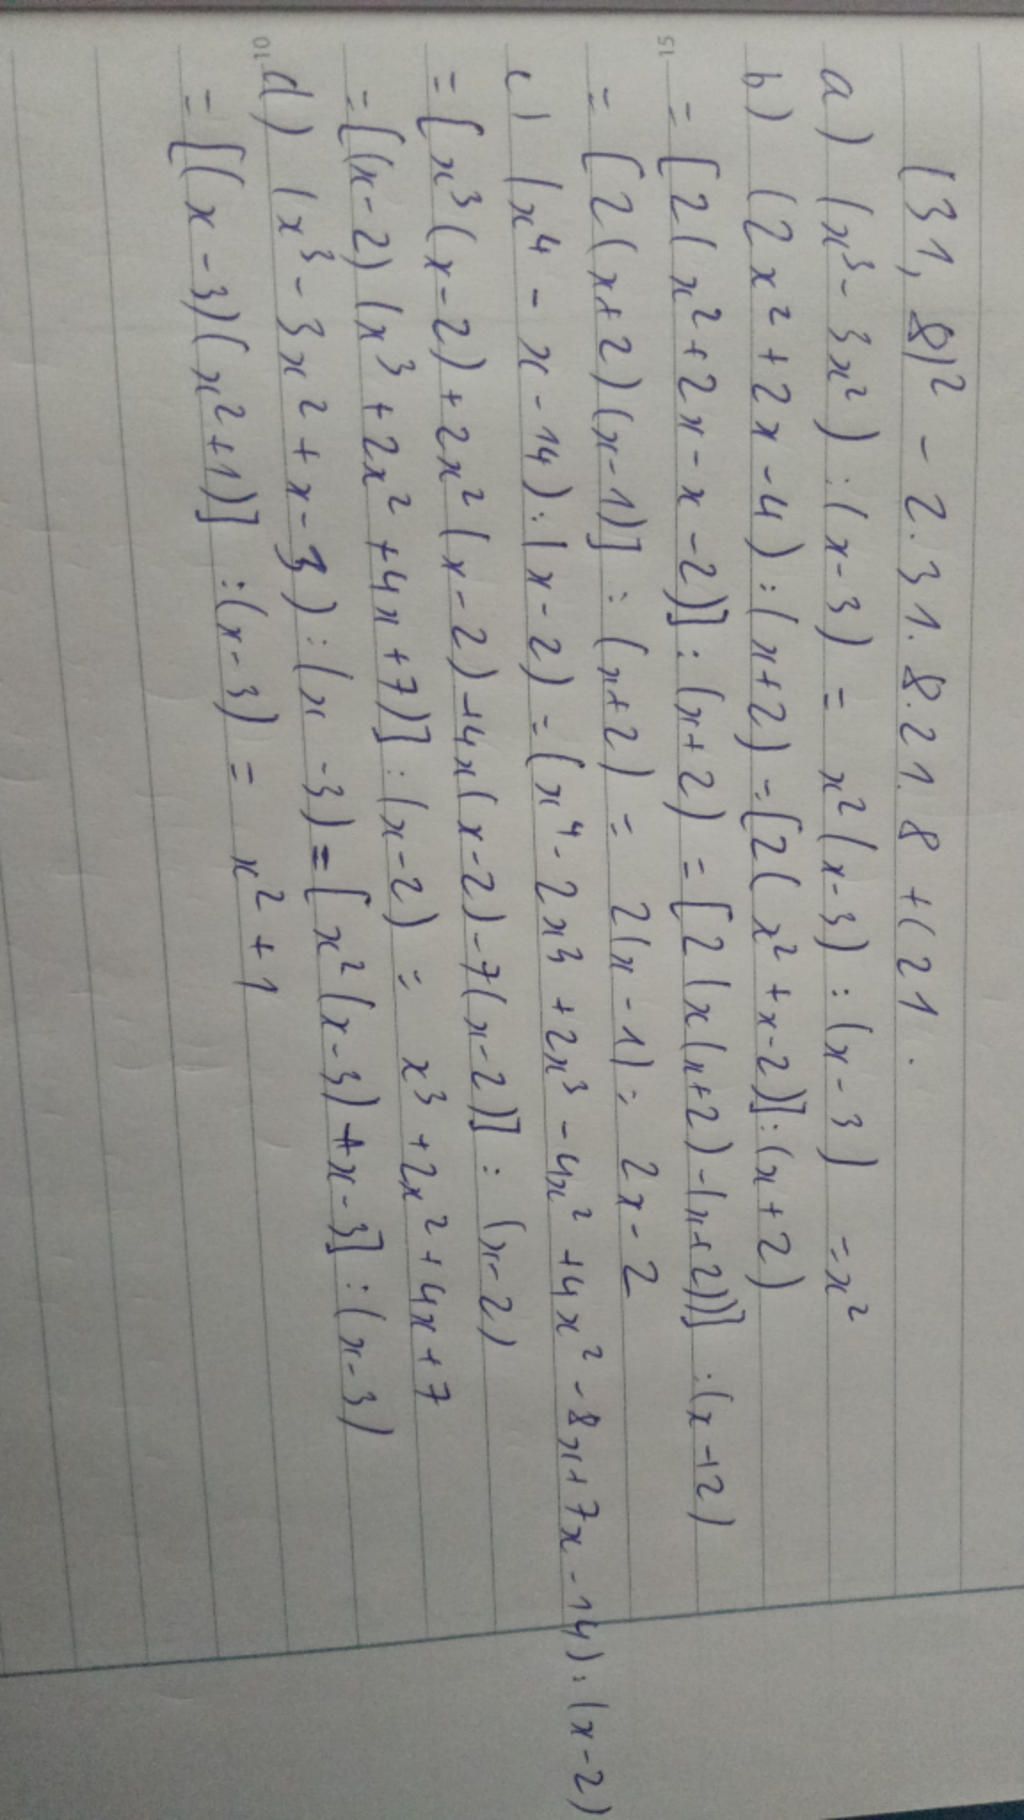 (31,8)² - 2.31.8.21.8 + (21.
a) (x³ - 3x²) : (x-3) = x²(x-3) : (x-3) = x²
b) (2x² + 2x - 4) : (x+2) = [2(x² + x - 2)] : (x+2)
= [2(x² + 2x - x - 2)] : (x+2) = [2(x(x+2) - (x+2))] : (x+2)
15
= [2(x+2)(x-1)] : (x+2) = 2(x-1) = 2x-2
c) (x⁴ - x - 14) : (x-2) = (x⁴ - 2x³ + 2x³ - 4x² + 4x² - 8x + 7x - 14) : (x-2)
= [x³(x-2) + 2x²(x-2) + 4x(x-2) - 7(x-2)] : (x-2)
= [(x-2)(x³ + 2x² + 4x + 7)] : (x-2) = x³ + 2x² + 4x + 7
d) (x³ - 3x² + x - 3) : (x-3) = [x²(x-3) + x-3] : (x-3)
10
= [(x-3)(x²+1)] : (x-3) = x² + 1